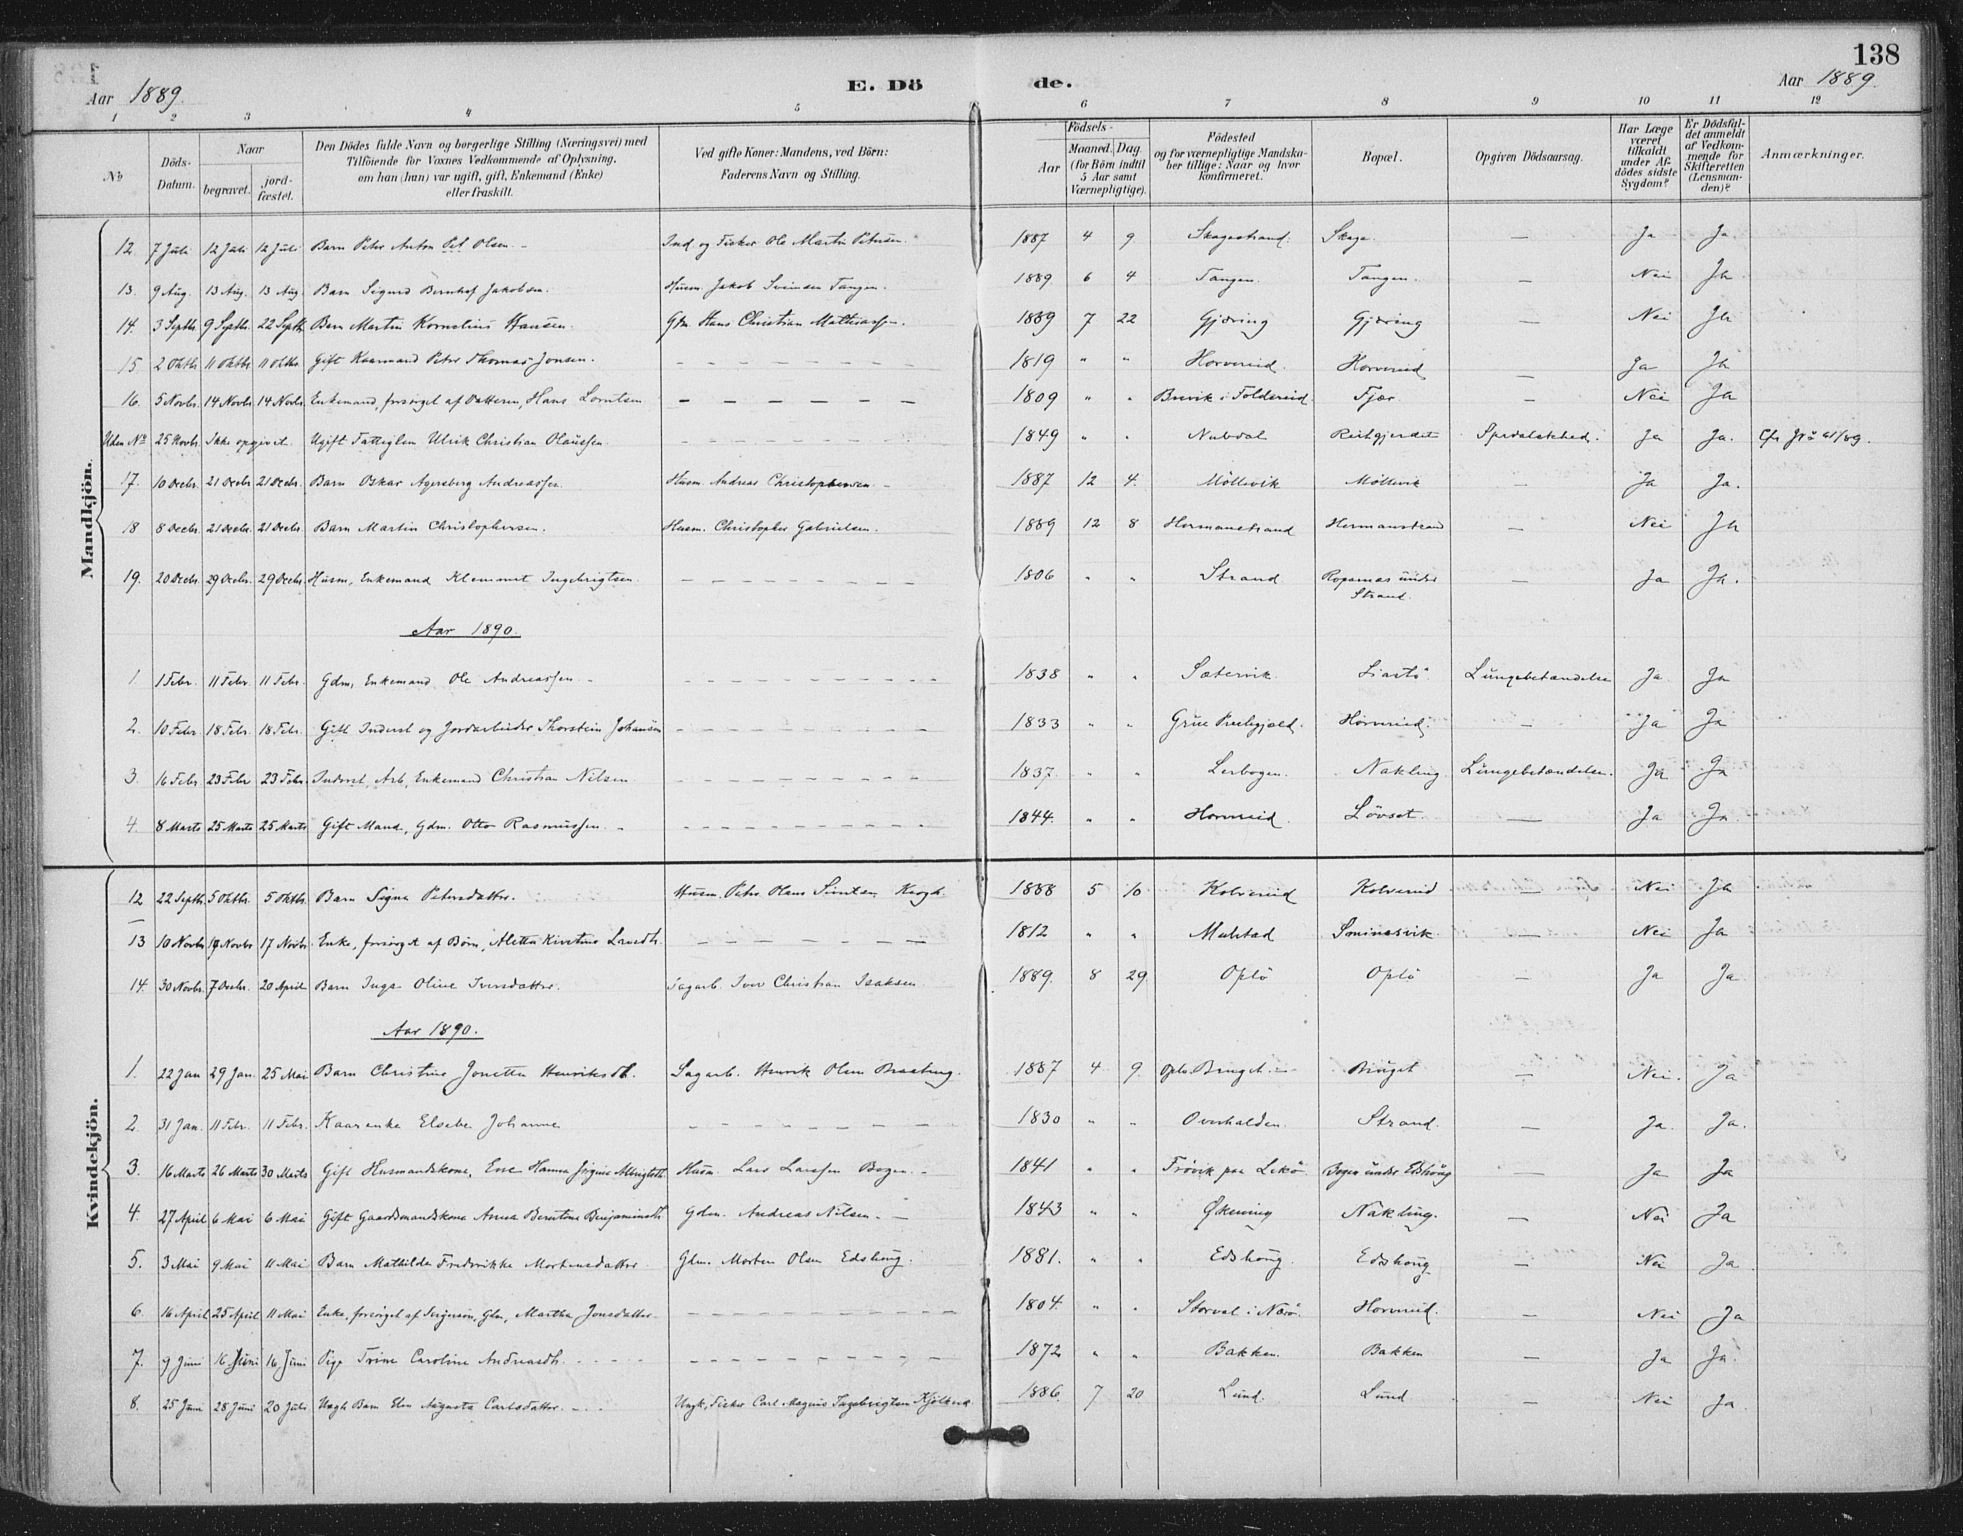 138
Aar 1889. E. Dö de. Aar 1889.
1 2 3 4 5 6 7 8 9 10 11 12
No Döds-Datum. Naar begravet. jord-fæstet. Den Dödes fulde Navn og borgerlige Stilling (Næringsvei) med Tilföiende for Voxnes Vedkommende af Oplysning, om han (hun) var ugift, gift, Enkemand (Enke) eller fraskilt. Ved gifte Koner: Mandens, ved Börn: Faderens Navn og Stilling. Födsels- Aar Maaned. Dag. (for Börn indtil 5 Aar samt Værnepligtige). Födested og for værnepligtige Mandskaber tillige: Naar og hvor konfirmeret. Bopæl. Opgiven Dödsaarsag. Har Læge været tilkaldt under Afdödes sidste Sygdom? Er Dödsfaldet anmeldt af Vedkommende for Skifteretten (Lensmanden)? Anmærkninger.
Mandkjön.
12. 7 Juli 12 Juli 12 Juli Barn Peter Anton Pet Olsen. Ind. og Fisker Ole Martin Petersen. 1887 4 9 Skagestrand. Skage. — Ja Ja.
13. 9 Aug. 13 Aug. 13 Aug. Barn Sigurd Bernhof Jakobsen. Husm. Jakob Svensen Tangen. 1889 6 4 Tangen. Tangen. — Nei Ja
14. 3 Septbr. 9 Septbr. 22 Septbr. Barn Martin Kornelius Hansen. Gdm. Hans Christian Mathiassen. 1889 7 22 Gjæring Gjæring — Nei Ja
15 2 Oktbr 11 Oktbr 11 Oktbr. Gift Kaarmand Peter Thomas Jonsen. 1819 " " Horvereid. Horvereid — Ja Ja
16. 5 Novbr. 14 Novbr 14 Novbr. Enkemand, forsörget af Datteren, Hans Lorntsen 1809 " " Brevik i Foldereid Fjær. — Nei Ja
Uden No 25 Novbr. Ikke opgivet. Ugift Fattiglem Ulrik Christian Olaussen. 1849 " " Nubdal Spedalskhed. Ja Ja.
17. 10 Decbr. 21 Decbr 21 Decbr. Barn Oskar Agersberg Andreassen. Husm. Andreas Christophersen. 1887 12 4. Möllevik Möllevik — Ja Ja.
18 8 Decbr. 21 Decbr. 21 Decbr. Barn Martin Christophersen. Husm. Christopher Gabrielsen. 1889 12 8 Hermanstrand Hermanstrand — Nei Ja
19. 20 Decbr. 29 Decbr. 29 Decbr. Husm, Enkemand Klemmet Ingebrigtsen. 1806 " " Strand Ropernes under Strand. — Ja Ja.
Aar 1890.
1. 1 Febr. 11 Febr. 11 Febr. Gdm, Enkemand Ole Andreassen. 1838 " " Sætervik Liastö Lungebetændelse Ja Ja
2. 10 Febr 18 Febr. 18 Febr. Gift Inderst og Jordarbeider Thorstein Johansen 1833 " " Grue Prestegjæld. Horvereid. — Ja Ja
3. 16 Febr. 23 Febr 23 Febr. Inderst, Arb, Enkemand Christian Nilsen. 1837. " " Lerbogen. Nakling. Lungebetændelse. Ja Ja
4. 8 Marts 25 Marts 25 Marts Gift Mand, Gdm. Otto Rasmussen. 1844. " " Horvereid. Lövset. — Ja Ja
Kvindekjön.
12 22 Septbr. 5 Oktbr. 5 Oktbr. Barn Signe Petersdatter. Husm. Peter Hans Krogh. 1888 5 10 Kolvereid Kolvereid — Nei Ja
13 10 Novbr 19 Novbr 17 Novbr. Enke, forsörget af Börn, Aletta Kirstine 1812 " " Mulstad — Nei Ja
14. 30 Novbr. 7 Decbr. 20 April Barn Inga Oline Iversdatter. Sagarb. Iver Christian Isaksen 1889. 8 29 Oplö Oplö — Ja Ja
Aar 1890.
1. 22 Jan 29 Jan. 25 Mai Barn Christine Jonetta Henriksdt. Sagarb. Henrik Olsen 1887 4 9. Oplö — Nei. Ja
2. 31 Jan. 11 Febr. 11 Febr. Kaarenke Elsebe Johanne 1830 " " Overhalden. Strand. — Ja. Ja.
3. 16 Marts 26 Marts 30 Marts Gift Husmandskone, Husm. Lars Larssen Bogen. 1841 " " Frövik paa Lekö Bogen under Edshaug — Ja Ja
4. 27 April 6 Mai 6 Mai Gift Gaardmandskone Anna Berntine Benjaminsdt. Gdm. Andreas Nilsen. — 1843 " " Nakling. — Nei Ja
5. 3 Mai 9 Mai 11 Mai Barn Mathilde Fredrikke Mortensdatter Gdm. Morten Olsen Edshaug. 1881. " " Edshaug. Edshaug — Nei Ja.
6. 16 April 25 April 11 Mai Enke, forsörget af Svigersön, Gdm, Martha Jonsdatter. 1804. " " Storval i Nærö. Horvereid. — Nei Ja
7. 9 Juni 16 Juni 16 Juni Pige Trine Caroline Andreasdt. 1872 " " Bakken. Bakken — Ja Ja.
8. 25 Juni 28 Juni 20 Juli Uægte Barn Elen Augusta Carlsdatter. Ungk, Fisker Carl Magnus Ingebrigtsen 1886. 7 20 Lund. Lund. — Nei Ja